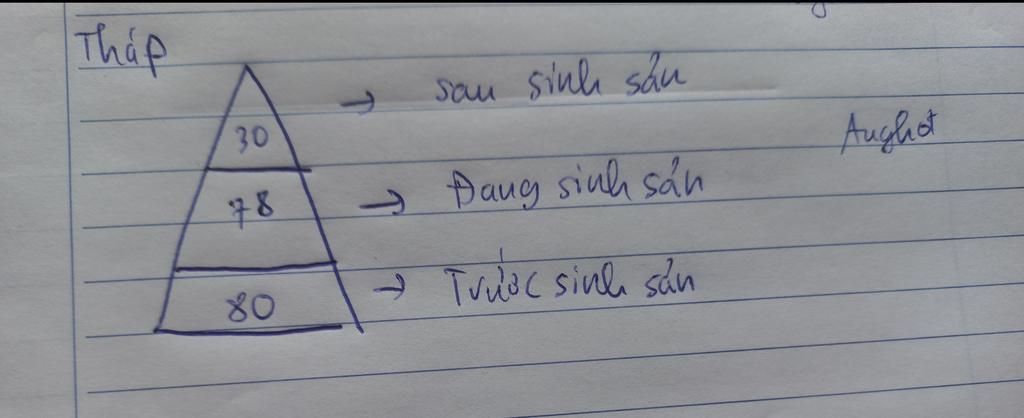 Tháp
30 → sau sinh sản
Aughot
78 → Đang sinh sản
80 → Trước sinh sản